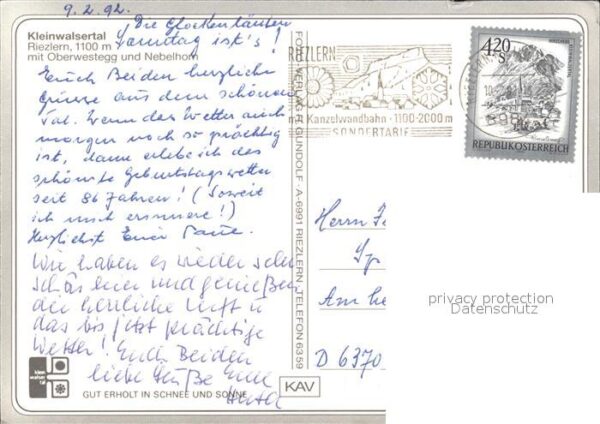 9.2.92.
Die Glocken läuten
Samstag ist's!
Kleinwalsertal
Riezlern, 1100 m
mit Oberwestegg und Nebelhorn
Euch Beiden herzliche
Grüsse aus dem schönen
Tal. Wenn das Wetter auch
morgen noch so prächtig
ist, dann erlebe ich das
schönste Geburtstagswetter
seit 86 Jahren! (Soweit
ich mich erinnere!)
Herzlichst Eure
Wir haben es wieder sehr
schön hier und genießen
die herrliche Luft u
das bis jetzt prächtige
Wetter! Euch Beiden
liebe Grüße Eure
GUT ERHOLT IN SCHNEE UND SONNE
KAV
FOTO-VERLAG R. GUNDOLF · A-6991 RIEZLERN · TELEFON 6359
RIEZLERN
Kanzelwandbahn · 1100-2000 m
SONDERTARIF
4.20
S
REPUBLIK ÖSTERREICH
Herrn
Am
D 6370
privacy protection
Datenschutz